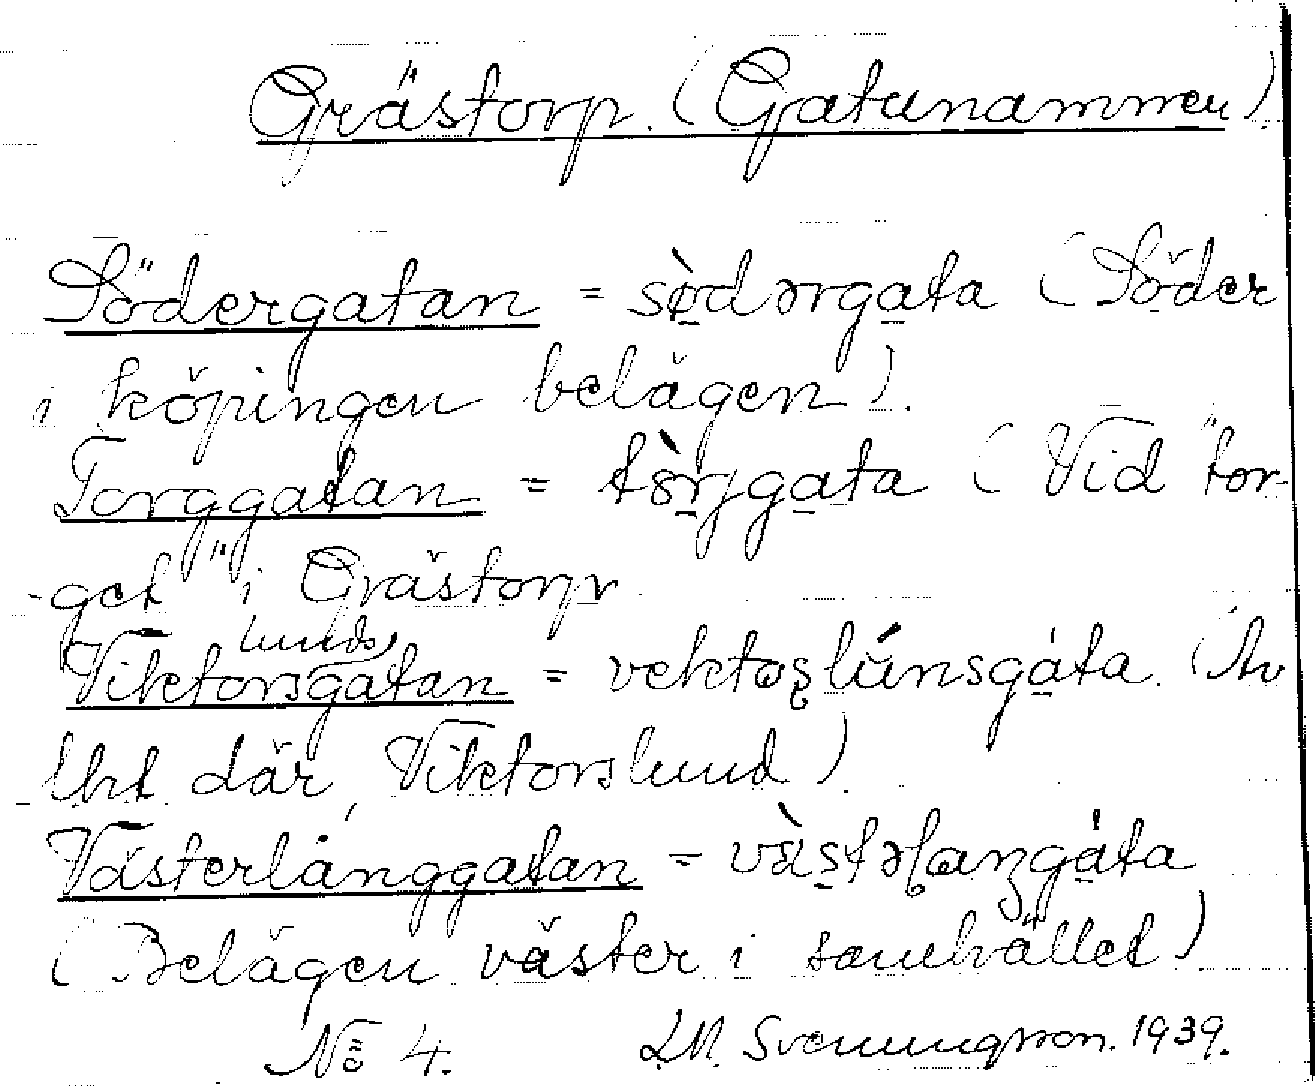 Grästorp. (Gatunamnen)
Södergatan = sødərgata (Söder
i köpingen belägen).
Torggatan = torjgata (Vid "tor-
-get" i Grästorp
Viktorslundsgatan = vektoʂlúnsgáta. (Av
likt där, Viktorslund)
Västerlånggatan = västəɭaŋgáta
(Belägen väster i samhället)
No 4. L.M. Svenungsson. 1939.